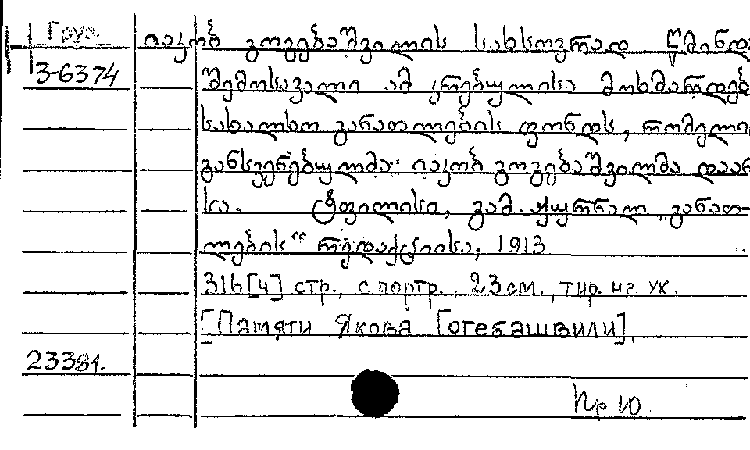 Груз.
იაკობ გოგებაშვილის სახსოვრად წმინდა
3-6374
შემოსავალი ამ კრებულისა მოხმარდებ
სახალხო განათლების ფონდს, რომელი
განსვენებულმა იაკობ გოგებაშვილმა დაარ
სა. ტფილისი, გამ. ჟურნალ „განათ-
ლების“ რედაქციისა, 1913.
316 [4] стр., с портр., 23 см., тир. не ук.
[Памяти Якова Гогебашвили].
23384.
Кр 10.